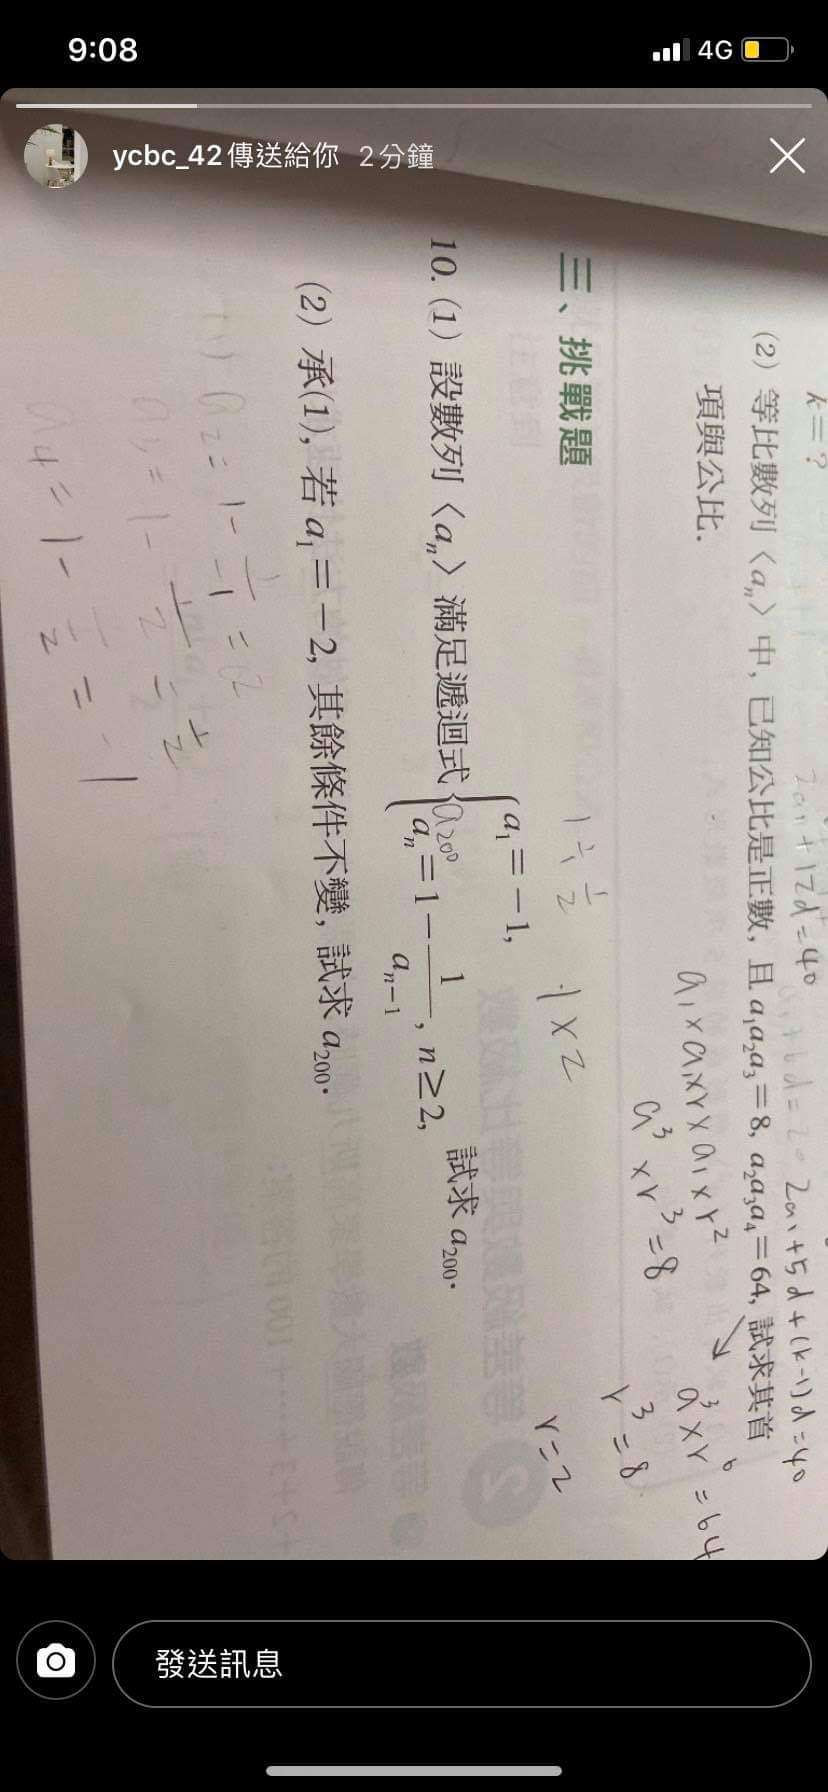 9:08
4G
ycbc_42傳送給你 2分鐘
k=?
2a₁+17d=40
2a₁+5d+(k-1)d=40
(2) 等比數列〈aₙ〉中, 已知公比是正數, 且 a₁a₂a₃=8, a₂a₃a₄=64, 試求其首
項與公比.
a₁×a₁×r×a₁×r²
a³×r⁶=64
a³×r³=8
r³=8
r=2
三、挑戰題
1÷1/2
1×2
10. (1) 設數列〈aₙ〉滿足遞迴式 { a₁=-1,
aₙ=1-1/aₙ₋₁, n≥2, 試求 a₂₀₀.
a₂₀₀
(2) 承(1), 若 a₁=-2, 其餘條件不變, 試求 a₂₀₀.
(1) a₂=1-1/-1=2
a₃=1-1/2=1/2
發送訊息